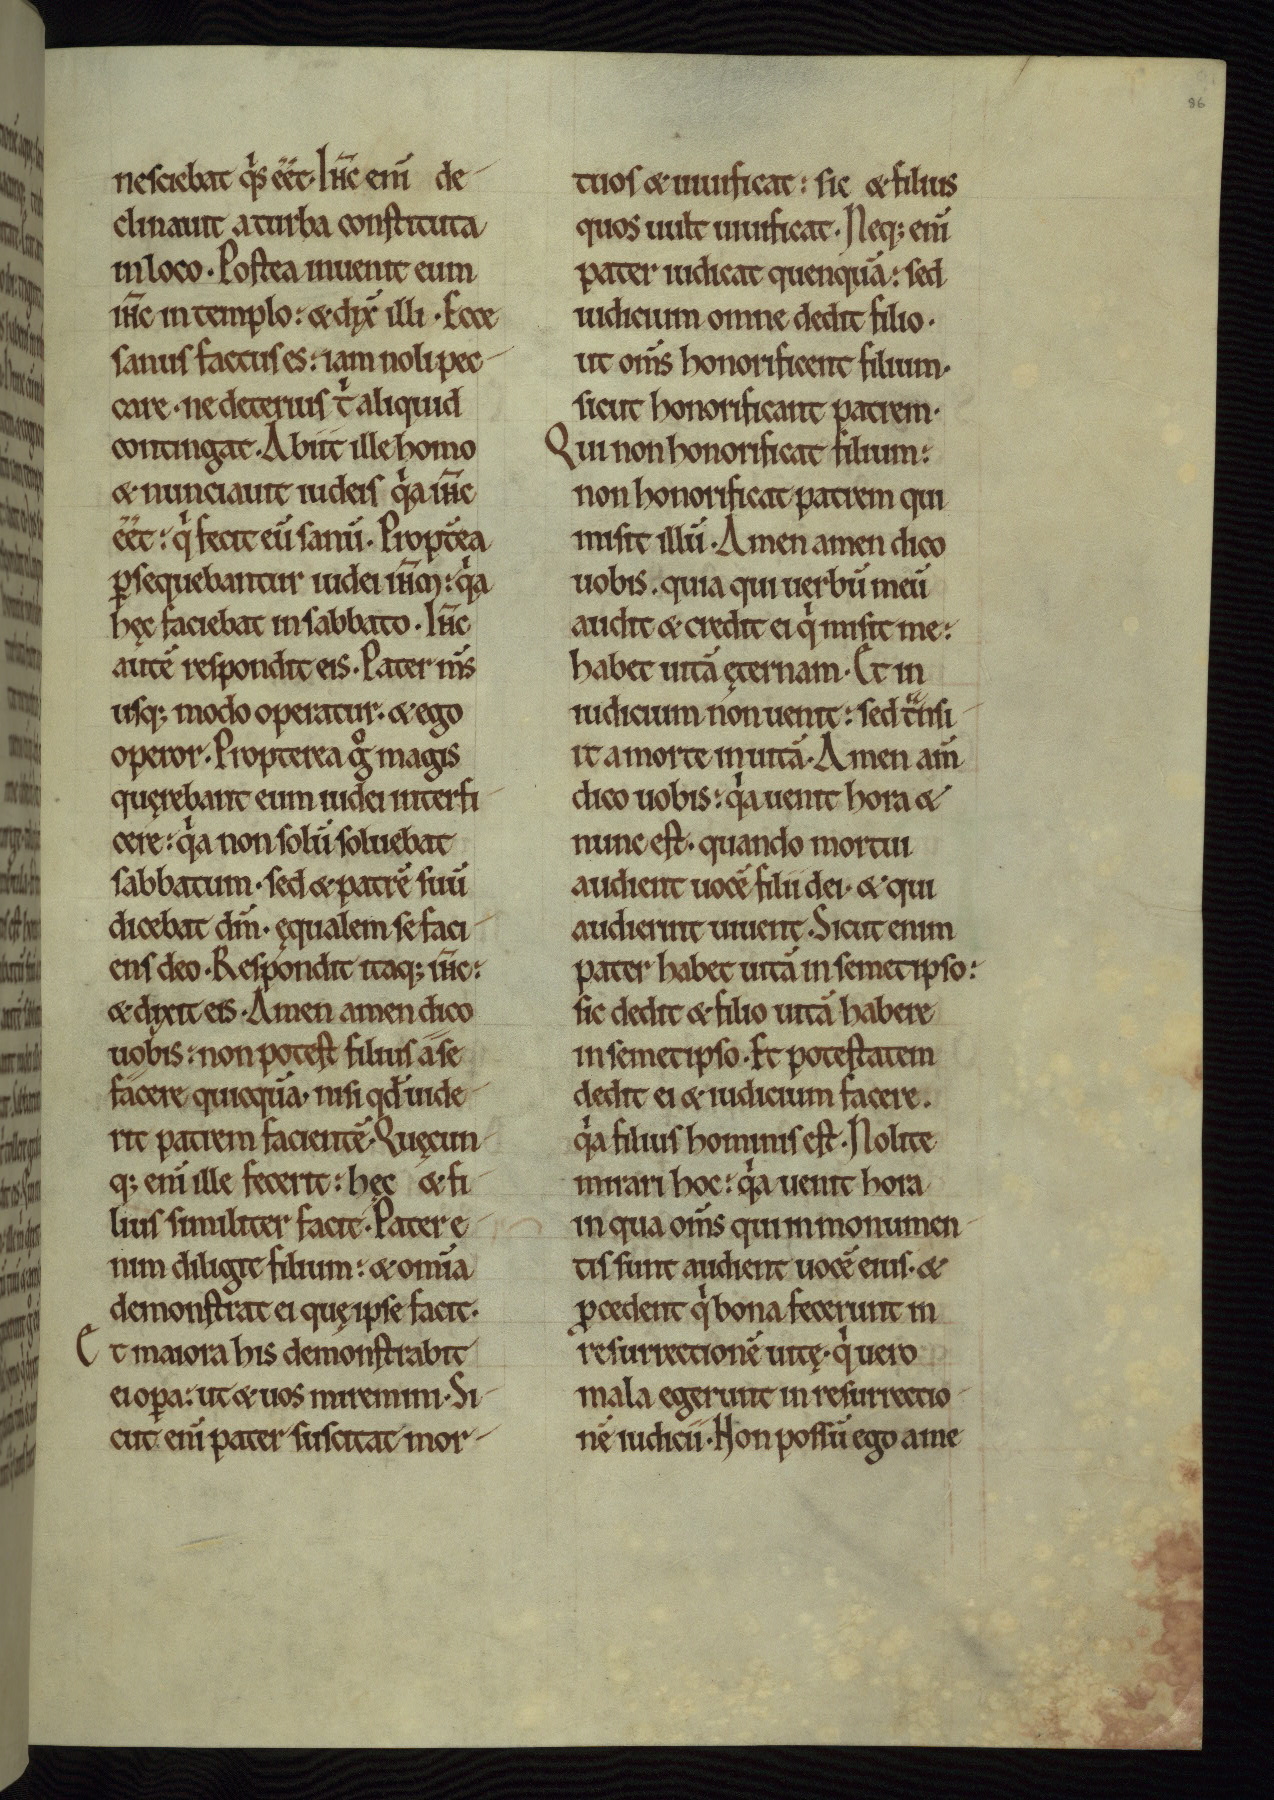 86
nesciebat qͥs ēēt. Iħc̄ eni̅ de
clinauit a turba constituta
in loco. Postea inuenit eum
iħc̄ in templo: & dix̄ illi. Ecce
sanus factus es: iam noli pec
care. ne deterius tͥ aliquid
contingat. Abiit ille homo
& nunciauit iudeis qͥa iħc̄
ēēt: qͥ fecit eū sanū. Propt̄ea
ꝑsequebantur iudei iħc̄m: qͥa
hęc faciebat in sabbato. Iħc̄
autē respondit eis. Pater m̄s
usq; modo operatur. & ego
operor. Propterea gͦ magis
quęrebant eum iudei interfi
cere: qͥa non solū soluebat
sabbatum. sed & patrē suū
dicebat dm̄. ęqualem se faci
ens deo. Respondit itaq; iħc̄:
& dixit eis. Amen amen dico
uobis: non potest filius a se
facere quicquā. nisi qd̄ uide
rit patrem facientē. Quęcun
q; eni̅ ille fecerit: hęc & fi
lius similiter facit. Pater e
nim diligit filium: & omīa
demonstrat ei quę ipse facit.
Et maiora his demonstrabit
ei oꝑa: ut & uos miremini. Si
cut eni̅ pater suscitat mor
tuos & uiuificat: sic & filius
quos uult uiuificat. Neq; eni̅
pater iudicat quenquā: sed
iudicium omne dedit filio.
ut om̄s honorificent filium.
sicut honorificant patrem.
Qui non honorificat filium:
non honorificat patrem qui
misit illū. Amen amen dico
uobis. quia qui uerbū meū
audit & credit ei qͥ misit me:
habet uitā ęternam. Et in
iudicium non uenit: sed tͣnsi
it a morte in uitā. Amen am̄
dico uobis: qͥa uenit hora &
nunc est. quando mortui
audient uocē filii dei. & qui
audierint uiuent. Sicut enim
pater habet uitā in semetipso:
sic dedit & filio uitā habere
in semetipso. Et potestatem
dedit ei & iudicium facere.
qͥa filius hominis est. Nolite
mirari hoc: qͥa uenit hora
in qua om̄s qui in monumen
tis sunt audient uocē eius. &
ꝓcedent qͥ bona fecerunt in
resurrectionē uitę. qͥ uero
mala egerunt in resurrectio
nē iudicii. Non possū ego a me